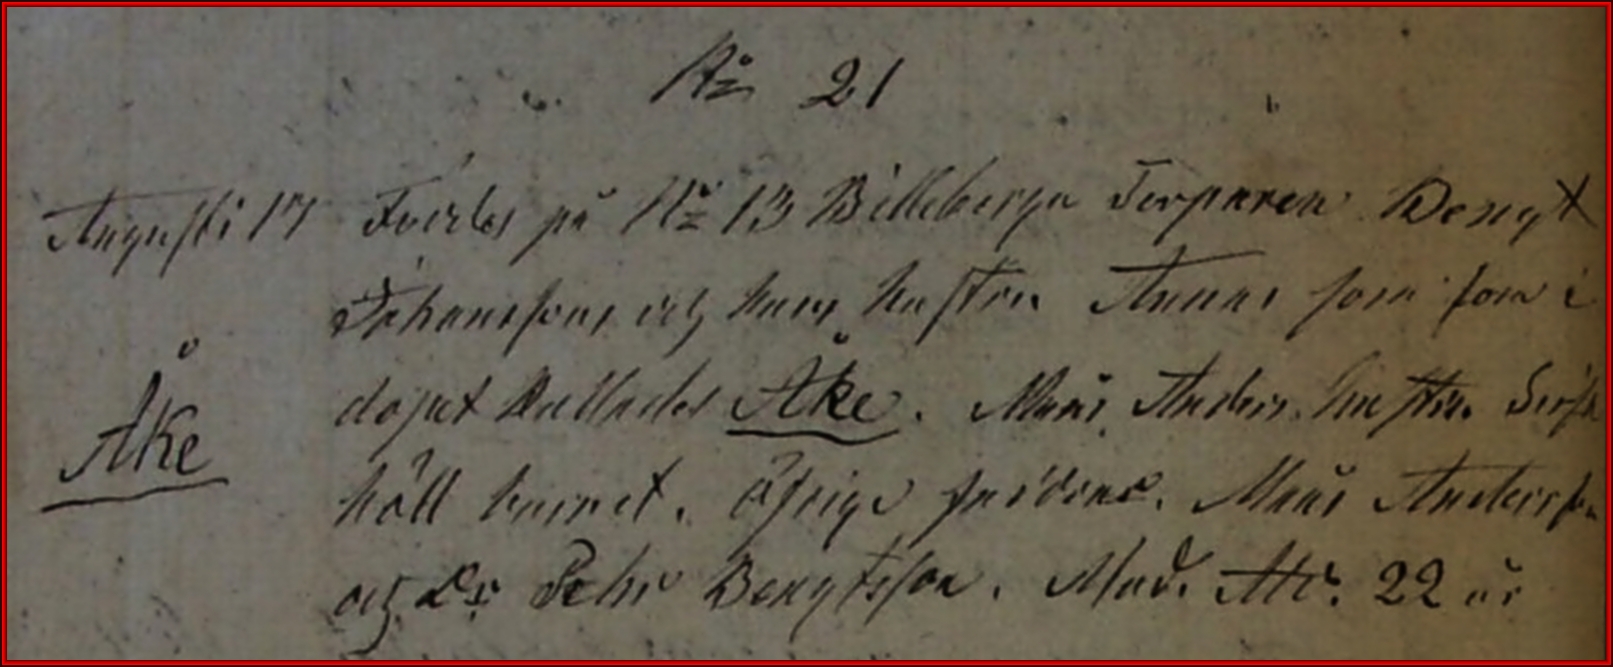 No 21
Augusti 17 Föddes på No 13 Billeberga Torparen Bengt
Johanssons och hans hustru Annas son som i
dopet kallades Åke. Måns Anders hustru
Åke
höll barnet. Öfrige faddrar. Måns Andersson
och Dr Pehr Bengtsson. Mod. Ålr. 22 år